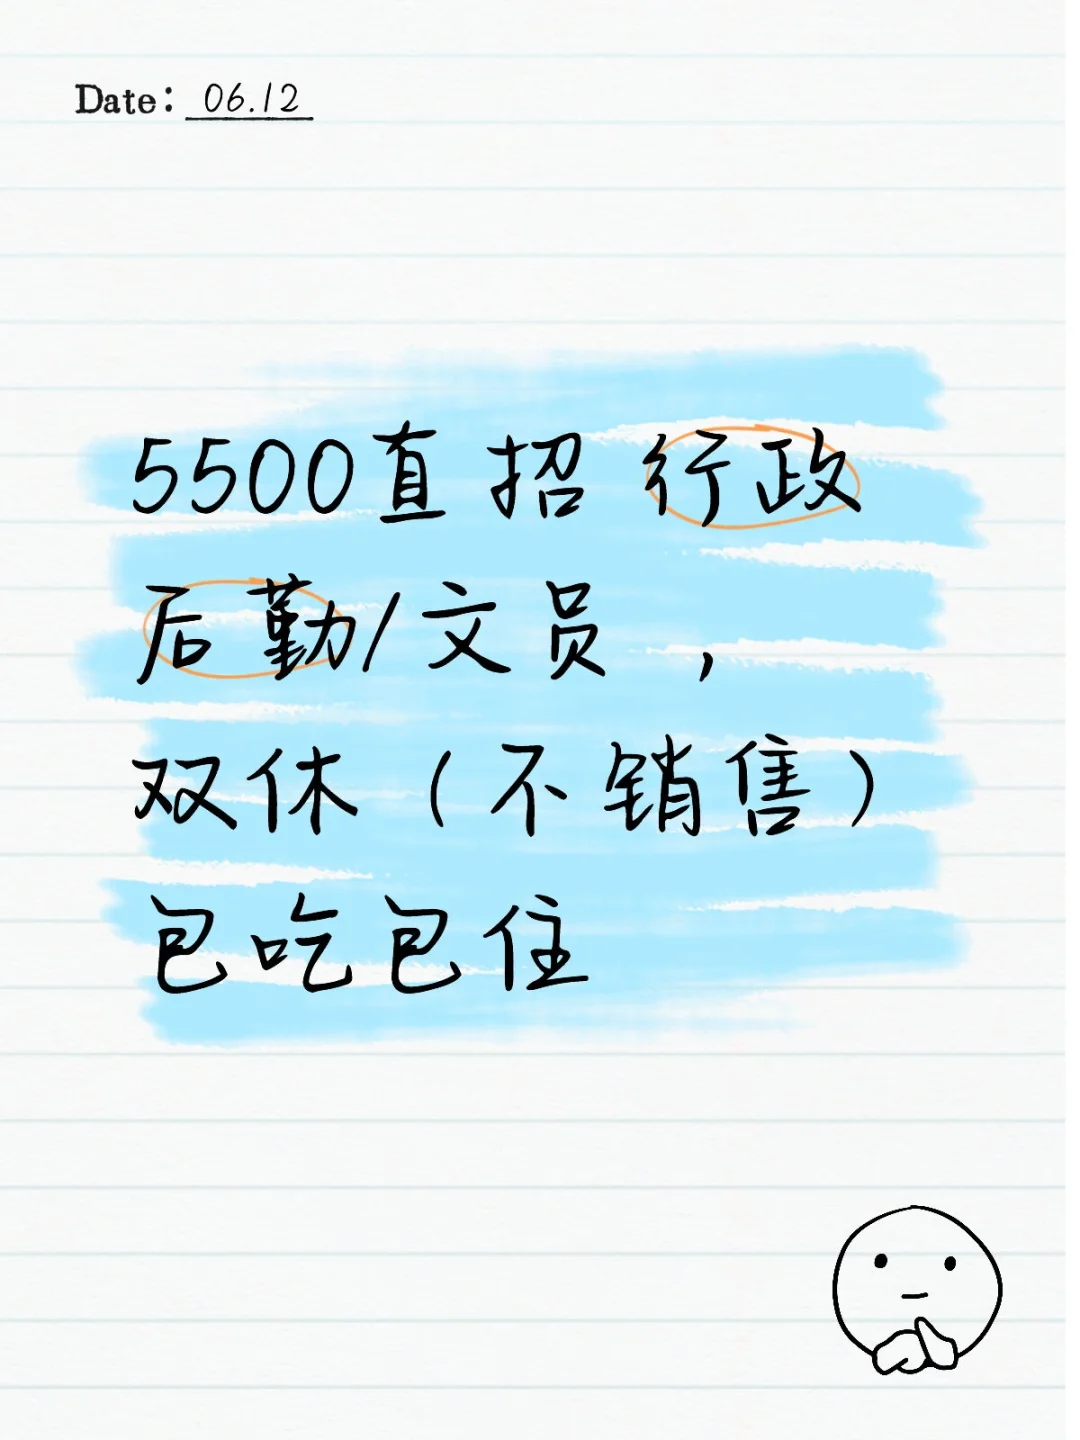 Date: 06.12
5500直招 行政
后勤/文员，
双休（不销售）
包吃包住